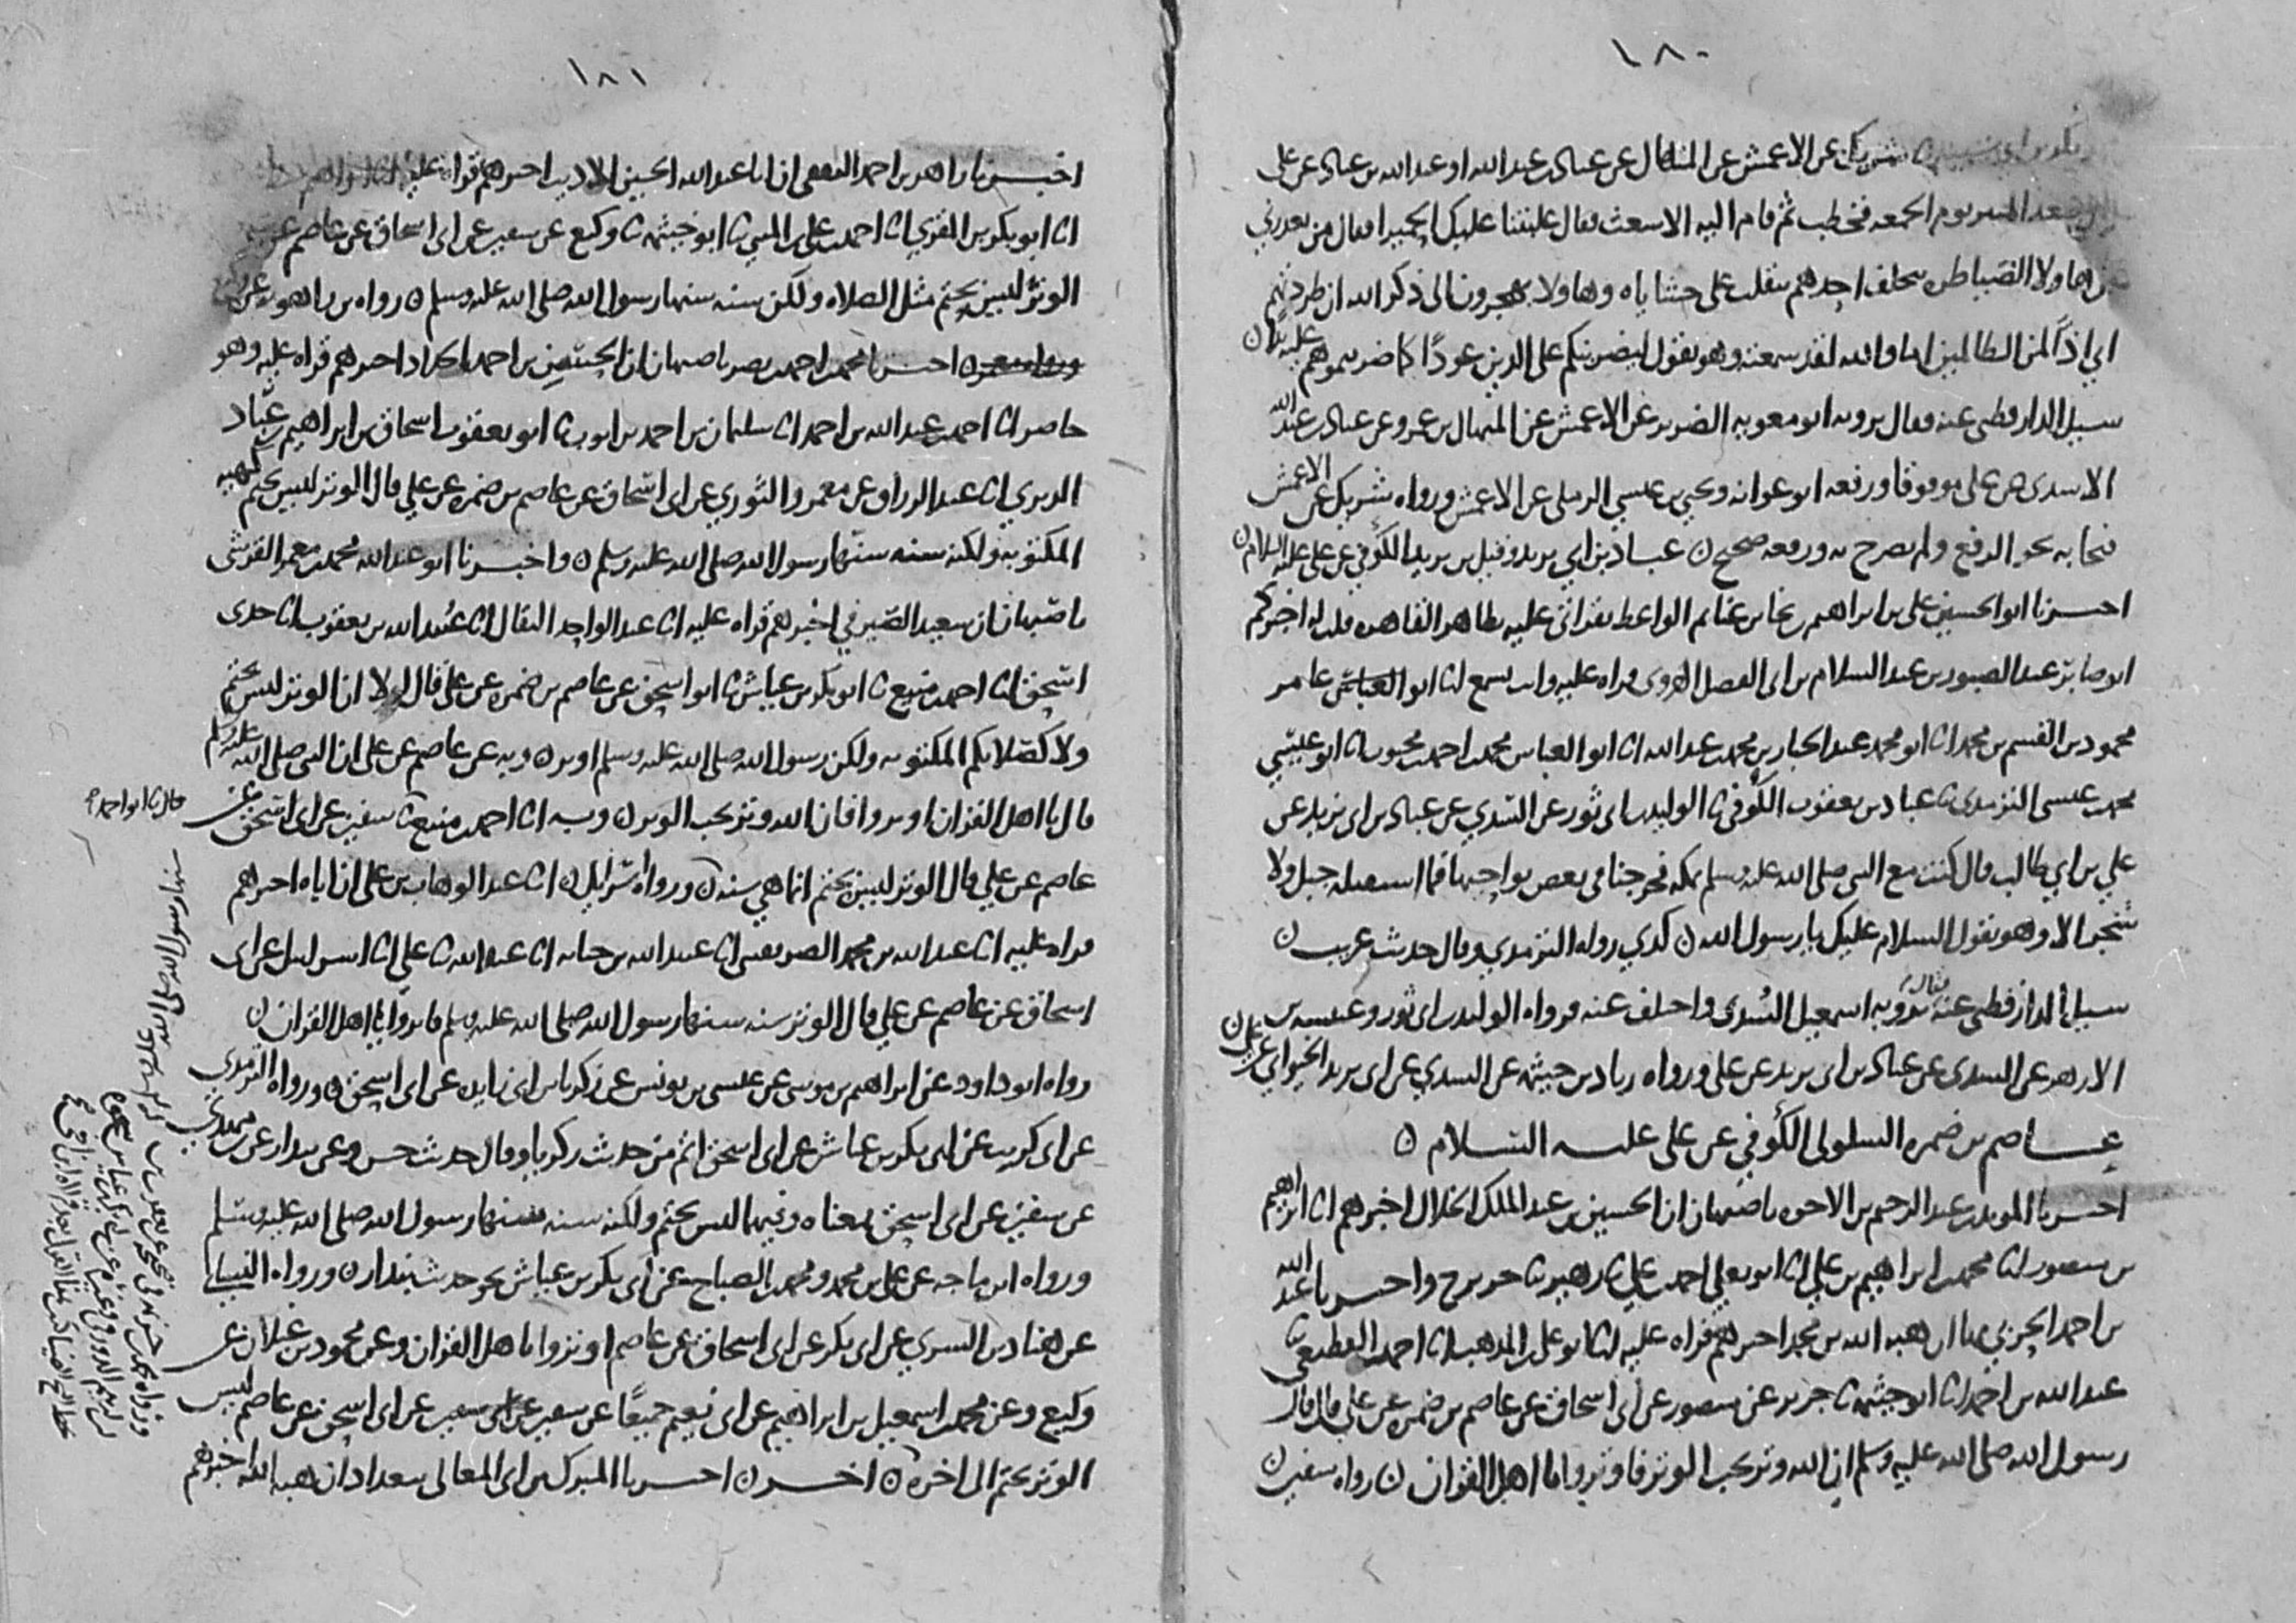 ١٨٠
شريك عن الاعمش عن المنهال عن عباد بن عبدالله او عبدالله بن عباد عن على
صعد المنبر يوم الجمعه فخطب ثم قام اليه الاشعث فقال غلبتنا عليك الحميرا فقال من يعذرني
من هاولا الضياطره يتخلف احدهم يتقلب على حشاياه وهاولا يهجرون الى ذكر الله ان طردتهم
اني اذًا لمن الظالمين اما والله لقد سمعته وهو يقول ليضربنكم على الدين عودًا كما ضربتموهم عليه بدا ن
سيل الدارقطني عنه فقال يرويه ابو معويه الضرير عن الاعمش عن المنهال بن عمرو عن عباد بن عبد الله
الاسدى عن على موقوفا ورفعه ابو عوانه ويحيى بن عيسى الرملى عن الاعمش ورواه شريك عن الاعمش
فنحا به نحو الرفع ولم يصرح به ورفعه صحيح ن عباد بن ابي يزيد وقيل بن يزيد الكوفي عن على عليه السلام ن
اخبرنا ابو الحسين على بن ابراهيم بن نجا بن غنايم الواعظ بقراتى عليه بظاهر القاهره قلت له اخبركم
ابو صابر عبد الصبور بن عبد السلام بن ابى الفضل الهروى قراه عليه وانت تسمع انا ابو عامر
محمود بن القسم بن محمد انا ابو محمد عبد الجبار بن محمد بن عبد الله انا ابو العباس محمد بن احمد بن محبوب انا ابو عيسي
محمد بن عيسى الترمذى ثنا عباد بن يعقوب الكوفى ثنا الوليد بن ابى ثور عن السدي عن عباد بن ابى يزيد عن
علي بن ابي طالب قال كنت مع النبى صلى الله عليه وسلم بمكه فخرجنا فى بعض نواحيها فما استقبله جبل ولا
شجر الا وهو يقول السلام عليك يا رسول الله ن كذي رواه الترمذي وقال حديث غريب ن
سيل الدارقطنى عنه فقال يرويه اسمعيل السُدى واختلف عنه فرواه الوليد بن ابى ثور وعنبسه بن
الازهر عن السدى عن عباد بن ابى يزيد عن على ورواه زياد بن خيثمه عن السدي عن ابى يزيد الخيواني عن على ن
عاصم بن ضمره السلولى الكوفي عن على عليه السلام ن
اخبرنا المويد بن عبد الرحيم بن الاخوه باصبهان ان الحسين بن عبد الملك الخلال اخبرهم انا ابراهيم
بن منصور انا محمد بن ابراهيم بن علي انا ابو يعلي احمد بن علي ثنا زهير ثنا جرير ح واخبرنا عبد الله
بن احمد الحربي ان هبه الله بن محمد اخبرهم قراه عليه انا ابو على بن المذهب انا احمد القطيعي ثنا
عبد الله بن احمد ثنا ابو خيثمه ثنا جرير عن منصور عن ابى اسحاق عن عاصم بن ضمره عن علي قال قال
رسول الله صلى الله عليه وسلم ان الله وتر يحب الوتر فاوتروا يا اهل القران ن رواه سفين ن
١٨١
اخبرنا زاهر بن احمد الثقفي ان ابا عبد الله الحسين الاديب اخبرهم قراه عليه
انا ابو بكر بن المقري انا احمد بن على بن المثنى ثنا ابو خيثمه ثنا وكيع عن سفين عن ابى اسحاق عن عاصم
الوتر ليس بحتم مثل الصلاه ولكن سنه سنها رسول الله صلى الله عليه وسلم ن رواه بن راهويه عن
اخبرنا محمد بن احمد بن نصر باصبهان ان الحسن بن احمد الحداد اخبرهم قراه عليه وهو
حاضر انا احمد بن عبد الله بن احمد انا سليمان بن احمد بن ايوب ثنا ابو يعقوب اسحاق بن ابراهيم بن عباد
الدبري انا عبد الرزاق عن معمر والثوري عن ابى اسحاق عن عاصم بن ضمره عن علي قال الوتر ليس بحتم كهيه
المكتوبه ولكنه سنه سنها رسول الله صلى الله عليه وسلم ن واخبرنا ابو عبد الله محمد بن معمر القرشى
باصبهان ان سعيد الصيرفي اخبرهم قراه عليه انا عبد الواحد البقال انا عبيد الله بن يعقوب انا جدى
اسحق انا احمد بن منيع ثنا ابو بكر بن عياش ثنا ابو اسحق عن عاصم بن ضمره عن على قال الا ان الوتر ليس بحتم
ولا كصلاتكم المكتوبه ولكن رسول الله صلى الله عليه وسلم اوتر ن وبه عن عاصم عن على ان النبى صلى الله عليه وسلم
قال يا اهل القران اوتروا فان الله وتر يحب الوتر ن وبه انا احمد بن منيع ثنا سفين عن ابى اسحق عن
عاصم عن علي قال الوتر ليس بحتم انما هي سنه ن ورواه اسرايل ن انا عبد الوهاب بن على ان اباه اخبرهم
قراه عليه انا عبد الله بن محمد الصريفينى انا عبيد الله بن حبابه انا عبد الله ثنا علي انا اسرايل عن ابى
اسحاق عن عاصم عن علي قال الوتر سنه سنها رسول الله صلى الله عليه وسلم فاوتروا يا اهل القران ن
رواه ابو داود عن ابراهيم بن موسى عن عيسى بن يونس عن زكريا بن ابى زايده عن ابى اسحق ن ورواه الترمذي
عن ابى كريب عن ابى بكر بن عياش عن ابى اسحق اتم من حديث زكريا وقال حديث حسن وعن بندار عن بن مهدي
عن سفين عن ابى اسحق بمعناه وفيهما ليس بحتم ولكنه سنه سنها رسول الله صلى الله عليه وسلم
ورواه ابن ماجه عن على بن محمد ومحمد بن الصباح عن ابى بكر بن عياش نحو حديث بندار ن ورواه النسائى
عن هناد بن السري عن ابى بكر عن ابى اسحاق عن عاصم اوتروا يا اهل القران وعن محمود بن غيلان عن
وكيع وعن محمد بن اسمعيل بن ابراهيم عن ابى نعيم جميعًا عن سفين عن ابى اسحق عن عاصم ليس
الوتر بحتم الى اخره ن اخر ن اخبرنا المبارك بن ابى المعالى ببغداد ان هبه الله اخبرهم
قال ثنا ابو احمد